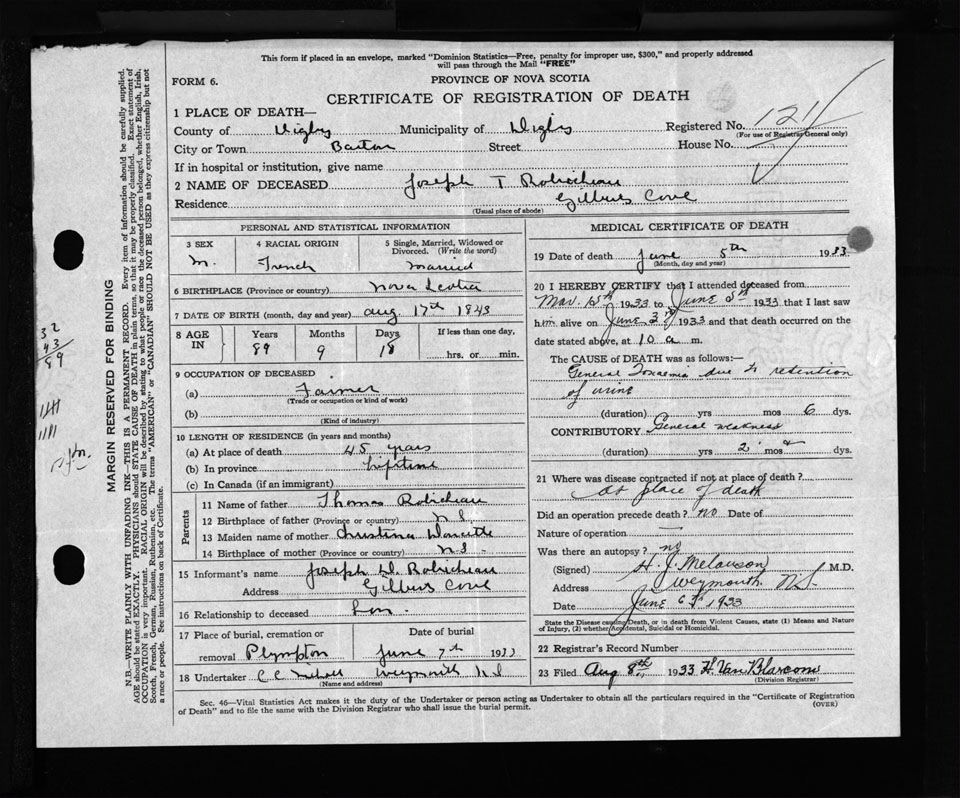 This form if placed in an envelope, marked "Dominion Statistics—Free, penalty for improper use, $300," and properly addressed
will pass through the Mail "FREE"
FORM 6.
PROVINCE OF NOVA SCOTIA
CERTIFICATE OF REGISTRATION OF DEATH
1 PLACE OF DEATH—
County of Digby Municipality of Digby Registered No. 1211
(For use of Registrar General only)
City or Town Barton Street House No.
If in hospital or institution, give name
2 NAME OF DECEASED Joseph T Robicheau
Residence Gilberts Cove
(Usual place of abode)
PERSONAL AND STATISTICAL INFORMATION
3 SEX 4 RACIAL ORIGIN 5 Single, Married, Widowed or Divorced. (Write the word)
M. French Married
6 BIRTHPLACE (Province or country) Nova Scotia
7 DATE OF BIRTH (month, day and year) Aug 17th 1843
8 AGE IN Years Months Days If less than one day,
89 9 18 hrs. or min.
9 OCCUPATION OF DECEASED
(a) Farmer
(Trade or occupation or kind of work)
(b)
(Kind of industry)
10 LENGTH OF RESIDENCE (in years and months)
(a) At place of death 45 years
(b) In province Lifetime
(c) In Canada (if an immigrant)
Parents
11 Name of father Thomas Robicheau
12 Birthplace of father (Province or country) N S
13 Maiden name of mother Christina Doucette
14 Birthplace of mother (Province or country) N S
15 Informant's name Joseph W. Robicheau
Address Gilberts Cove
16 Relationship to deceased Son
17 Place of burial, cremation or removal Plympton
Date of burial June 7th 1933
18 Undertaker C C Weymouth N S
(Name and address)
MEDICAL CERTIFICATE OF DEATH
19 Date of death June 5th 1933
(Month, day and year)
20 I HEREBY CERTIFY that I attended deceased from
Mar. 15th 1933 to June 5th 1933 that I last saw
him alive on June 3rd 1933 and that death occurred on the
date stated above, at 10 a m.
The CAUSE of DEATH was as follows:—
General Toxaemia due to retention
of urine
(duration) yrs mos 6 dys.
CONTRIBUTORY General weakness
(duration) yrs 2 mos dys.
21 Where was disease contracted if not at place of death?
At place of death
Did an operation precede death? no Date of
Nature of operation
Was there an autopsy? no
(Signed) H. J. Melanson M.D.
Address Weymouth N.S.
Date June 6th 1933
State the Disease causing Death, or in death from Violent Causes, state (1) Means and Nature
of Injury, (2) whether Accidental, Suicidal or Homicidal.
22 Registrar's Record Number
23 Filed Aug 8th 1933 H. Van Blarcom
(Division Registrar)
Sec. 46—Vital Statistics Act makes it the duty of the Undertaker or person acting as Undertaker to obtain all the particulars required in the "Certificate of Registration
of Death" and to file the same with the Division Registrar who shall issue the burial permit.
(OVER)
MARGIN RESERVED FOR BINDING
N.B.—WRITE PLAINLY WITH UNFADING INK—THIS IS A PERMANENT RECORD. Every item of information should be carefully supplied.
AGE should be stated EXACTLY. PHYSICIANS should STATE CAUSE OF DEATH in plain terms, so that it may be properly classified. Exact statement of
OCCUPATION is very important. RACIAL ORIGIN will be described by stating to what people or race the deceased person belonged, whether English, Irish,
Scotch, French, German, Russian, Ruthenian, etc. The terms "AMERICAN" or "CANADIAN" SHOULD NOT BE USED as they express citizenship but not
a race or people. See instructions on back of Certificate.
32
43
89